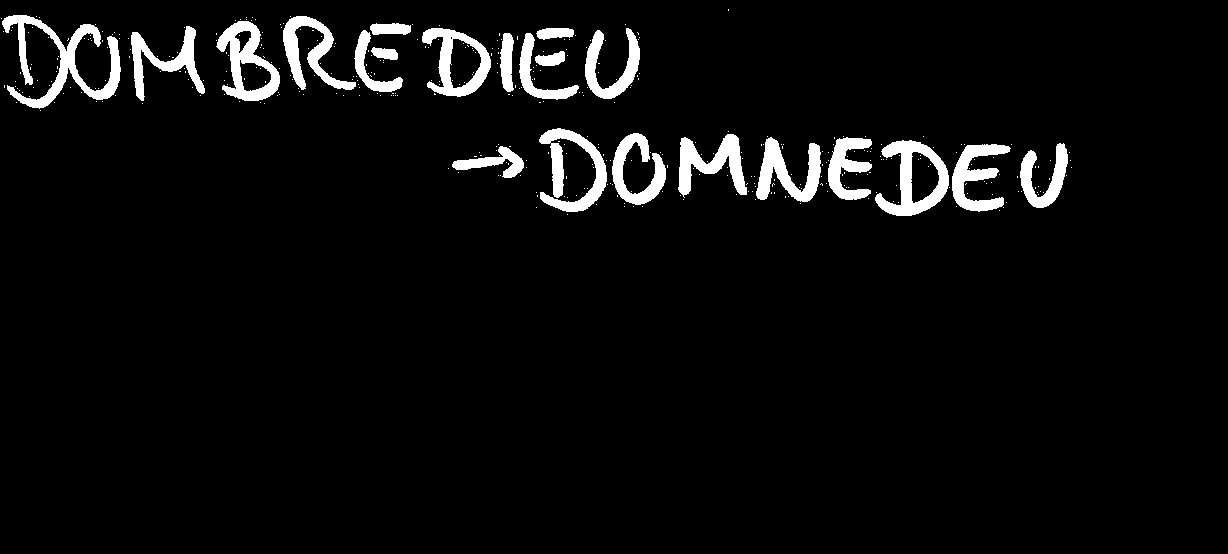 DOMBREDIEU
→ DOMNEDEU